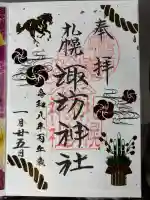 奉拝
札幌
諏訪神社
令和八年丙午歳
一月廿五日